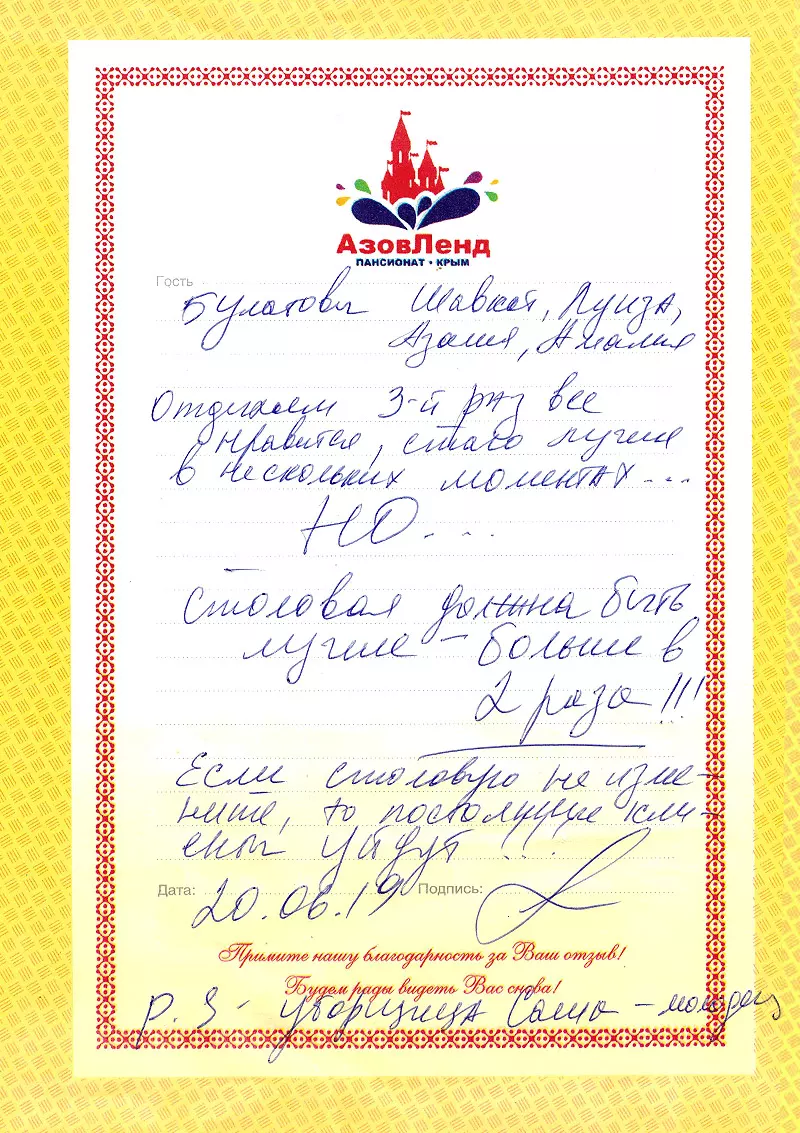 АзовЛенд
ПАНСИОНАТ • КРЫМ
Гость
Булатовы Шавкат, Луиза,
Азалия, Амалия
Отдыхаем 3-й раз все
нравится, стало лучше
в нескольких моментах...
НО...
столовая должна быть
лучше - больше в
2 раза!!!
Если столовую не изме-
ните, то постоянные кли-
енты уйдут!!!
Дата: 20.06.19 Подпись:
Примите нашу благодарность за Ваш отзыв!
Будем рады видеть Вас снова!
P.S - уборщица Саша - молодец